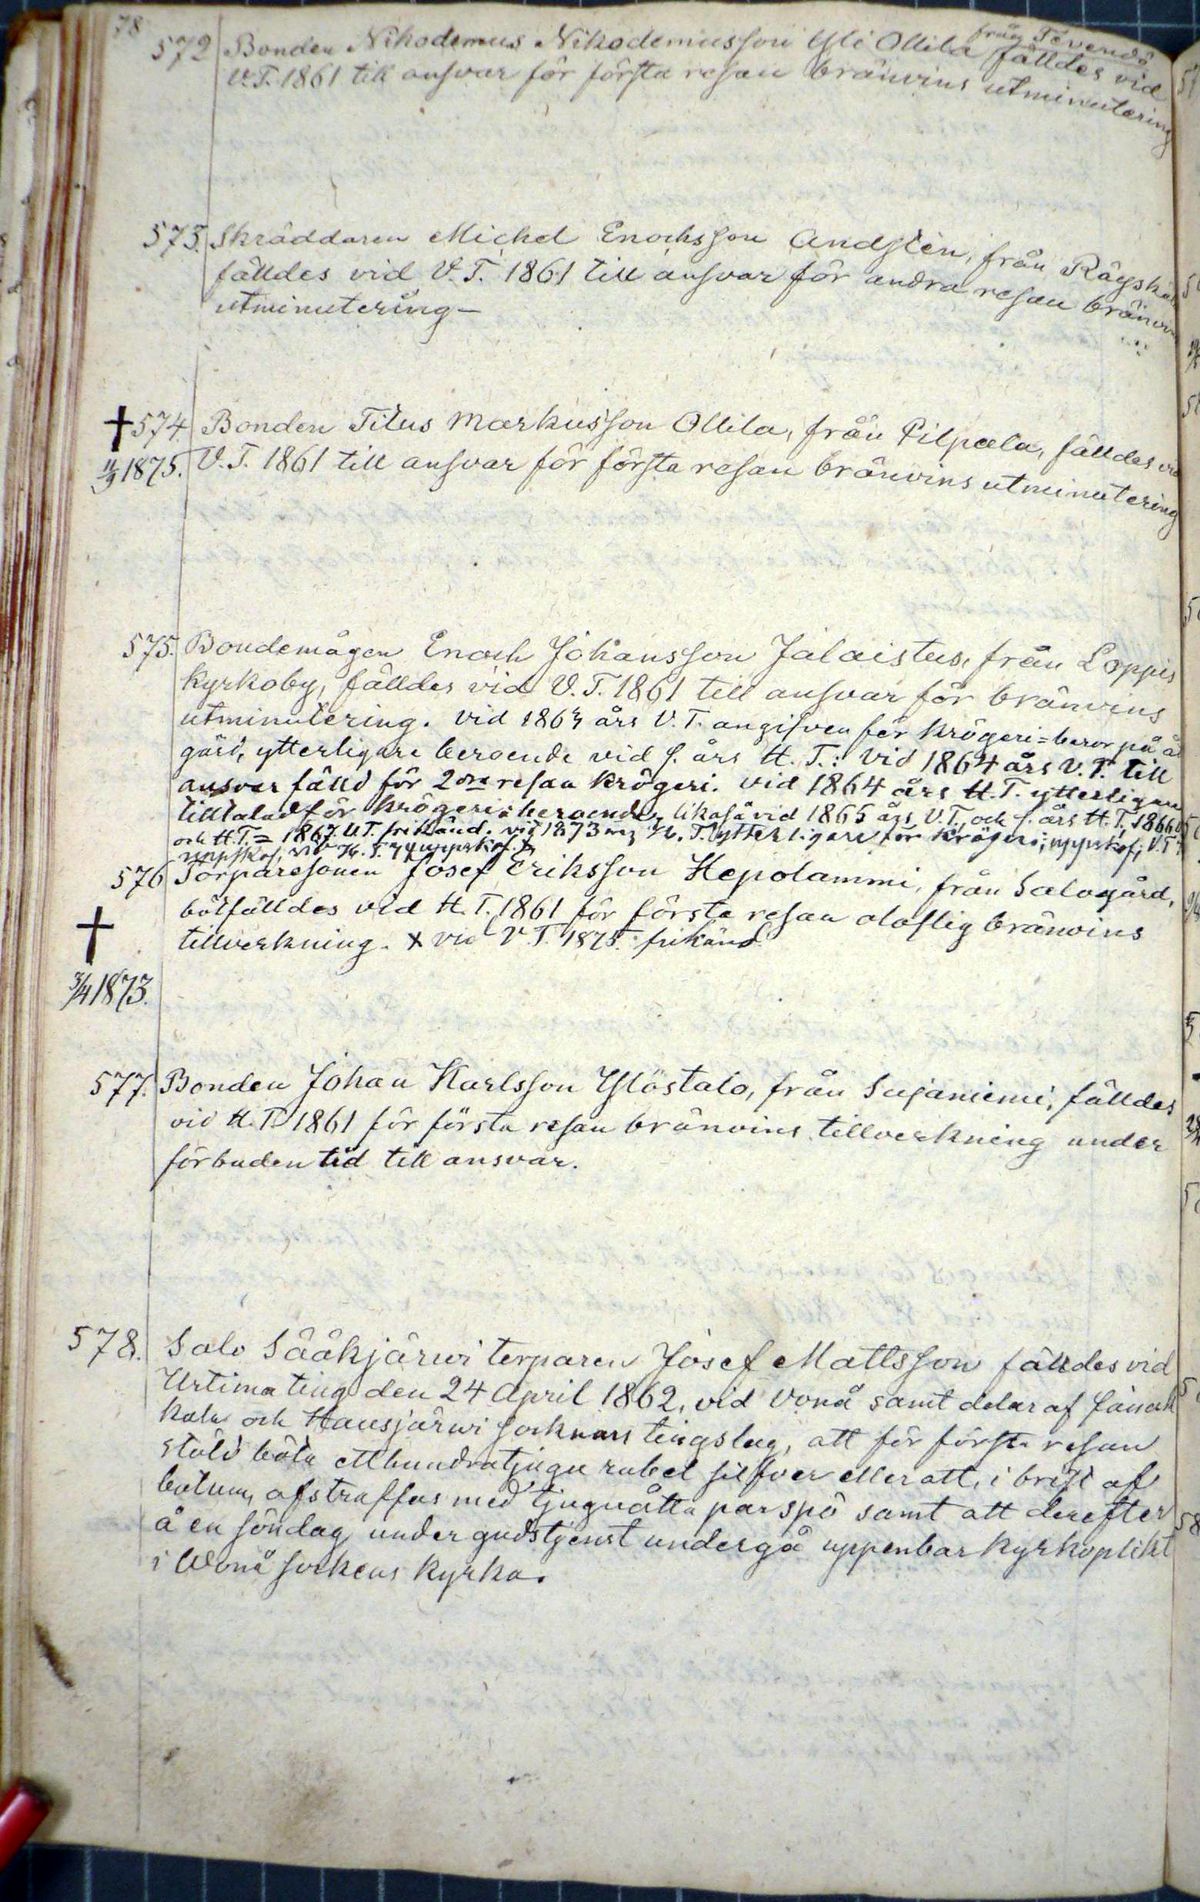 78
från Tevendö
572 Bonden Nikodemus Nikodemusson Yli Ollila fälldes vid
V.T. 1861 till ansvar för första resan bränvins utminutering
573. Skräddaren Michel Enochsson Andstén, från Räyskä
fälldes vid V.T. 1861 till ansvar för andra resan bränvins
utminutering –
† 574. Bonden Titus Markusson Ollila, från Pilpala, fälldes vid
1875. V.T. 1861 till ansvar för första resan bränvins utminutering
575. Bondemågen Enoch Johansson Jalaistus, från Loppis
kyrkoby, fälldes vid V.T. 1861 till ansvar för bränvins
utminutering. vid 1863 års V.T. angifven för krögeri = beror på å
gärd, ytterligare beroende vid s. års H.T.: vid 1864 års V.T. till
ansvar fälld för 2dra resan krögeri. vid 1864 års H.T. ytterligare
tilltalad för krögeri: beroende, likaså vid 1865 års V.T. och s. års H.T. 1866
och H.T. = 1867 V.T. frikänd. vid 1873 H.T. ytterligare för krögeri; uppskof; V.T.
uppskof, vid H.T. uppskof.
576 Torparesonen Josef Eriksson Hepolammi, från Salogård,
bötfälldes vid H.T. 1861 för första resan olaflig bränvins
tillverkning. x vid V.T. 1875 frikänd
†
3/4 1873.
577. Bonden Johan Karlsson Ylöstalo, från Sajaniemi, fälldes
vid H.T. 1861 för första resan bränvins tillverkning under
förbuden tid till ansvar.
578. Salo Sääkjärwi torparen Josef Mattsson fälldes vid
Urtima ting den 24 April 1862, vid Vonå samt delar af Janak
kala och Hausjärwi socknars tingslag, att för första resan
stöld böta etthundratjugu rubel silfver eller att, i brist af
botum, afstraffas med tjuguåtta par spö samt att derefter
å en söndag under gudstjenst undergå uppenbar kyrkoplikt
i Wonå sockens kyrka.